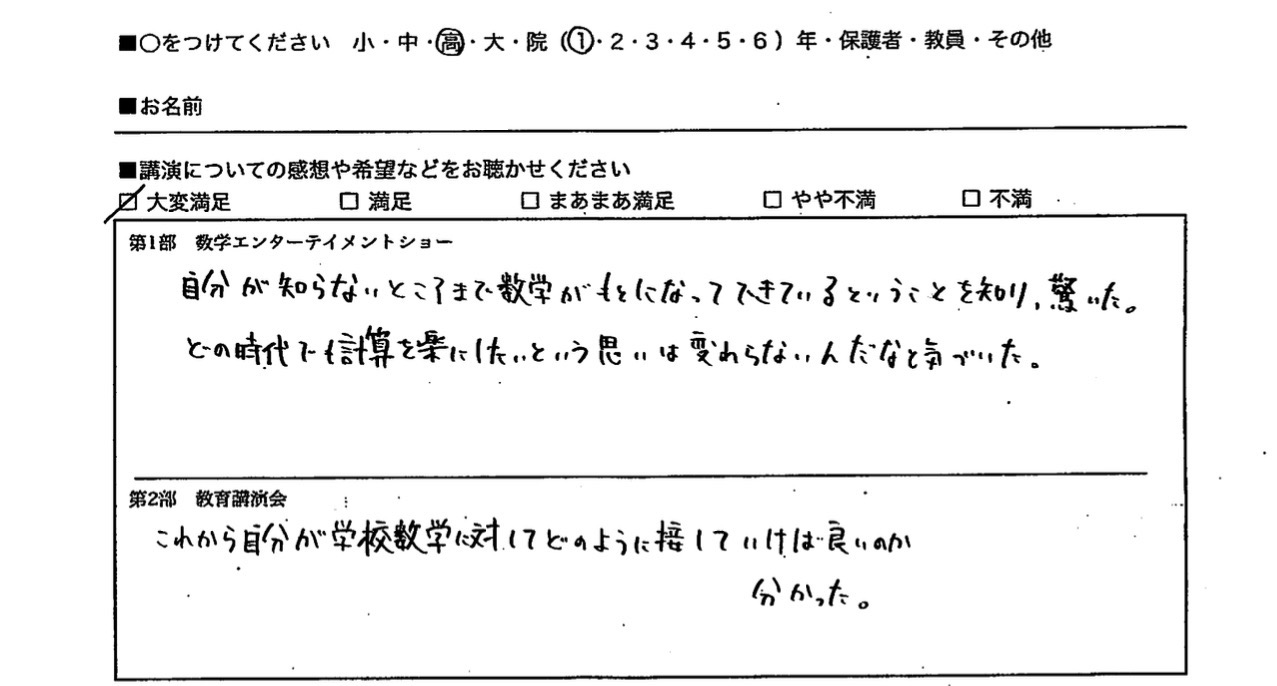 ■○をつけてください 小・中・高・大・院（1・2・3・4・5・6）年・保護者・教員・その他
■お名前
■講演についての感想や希望などをお聴かせください
☑ 大変満足 □ 満足 □ まあまあ満足 □ やや不満 □ 不満
第1部 数学エンターテイメントショー
自分が知らないところまで数学がもとになってできているということを知り、驚いた。
どの時代でも計算を楽にしたいという思いは変わらないんだなと気づいた。
第2部 教育講演会
これから自分が学校数学に対してどのように接していけば良いのか
分かった。